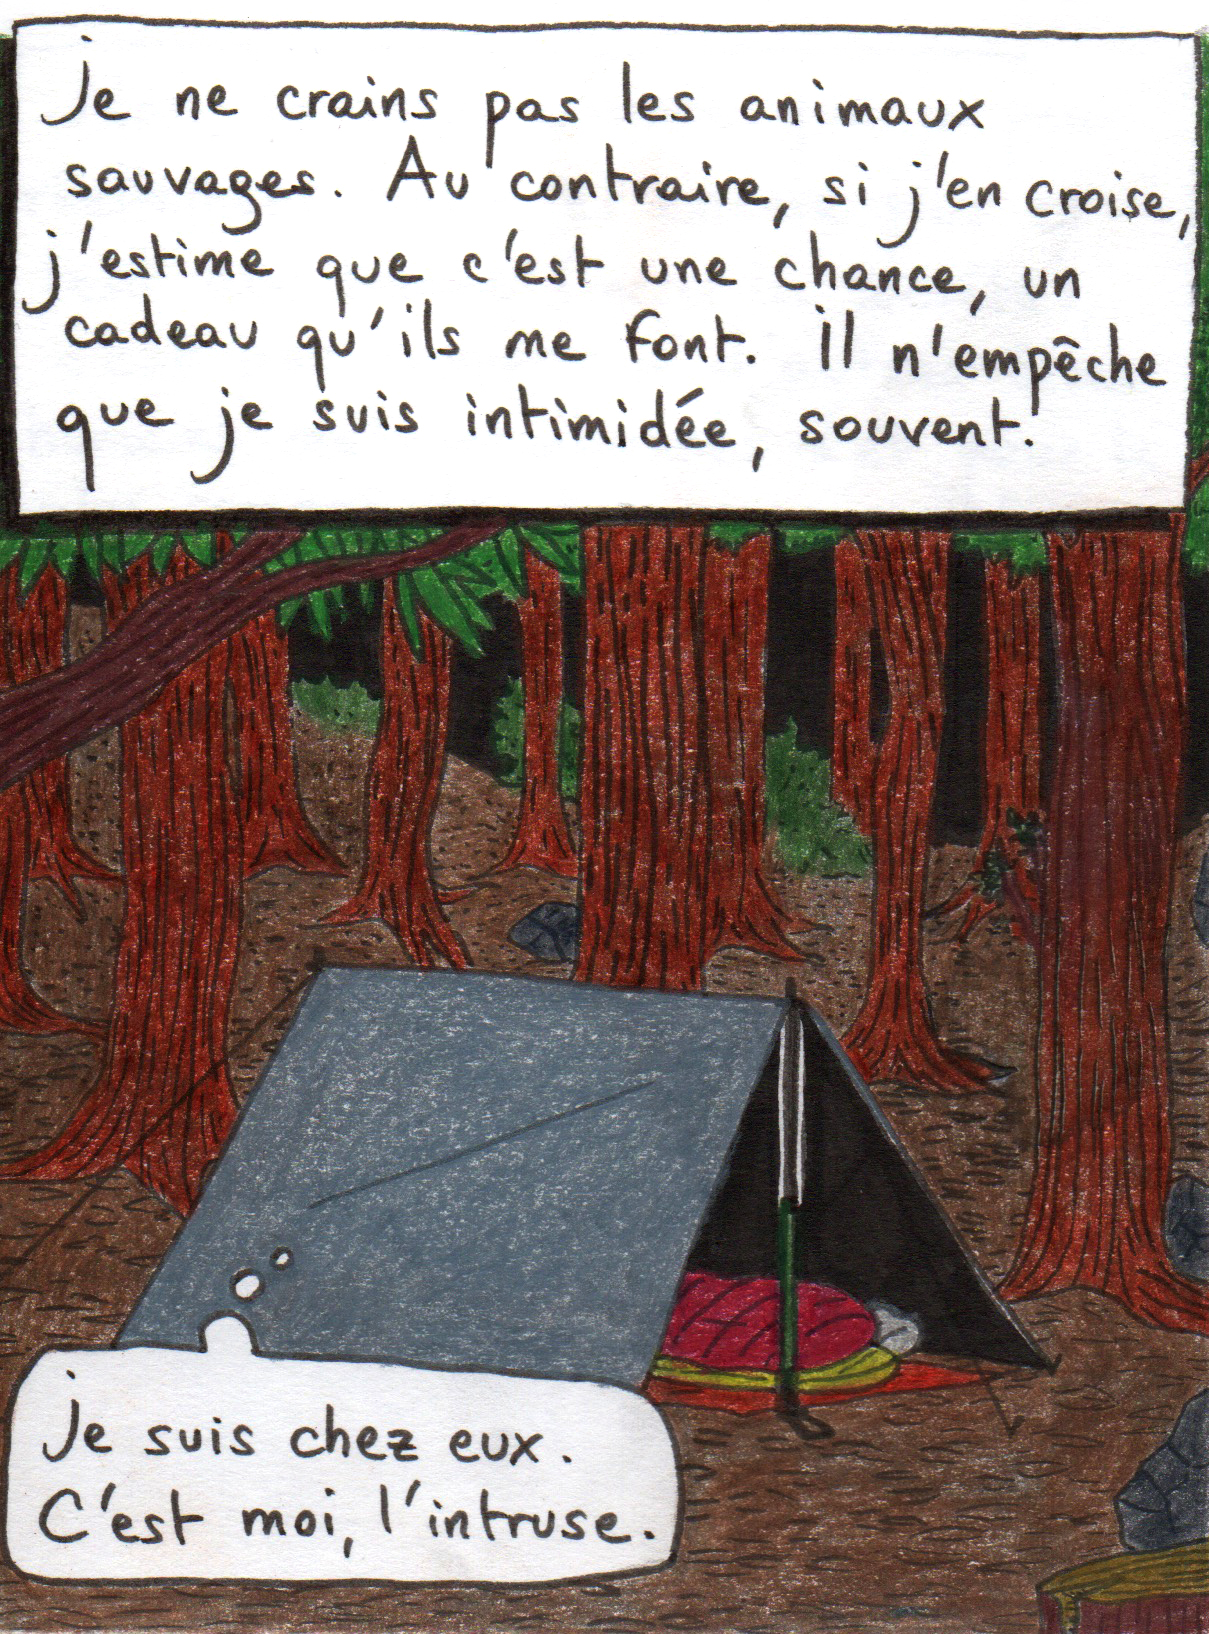 Je ne crains pas les animaux
sauvages. Au contraire, si j'en croise,
j'estime que c'est une chance, un
cadeau qu'ils me font. Il n'empêche
que je suis intimidée, souvent.
Je suis chez eux.
C'est moi, l'intruse.